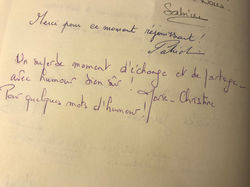 Sabrina
Merci pour ce moment réjouissant !
Un superbe moment d'échange et de partage_
avec humour bien sûr ! Marie-Christine
Pour quelques mots d'humour !